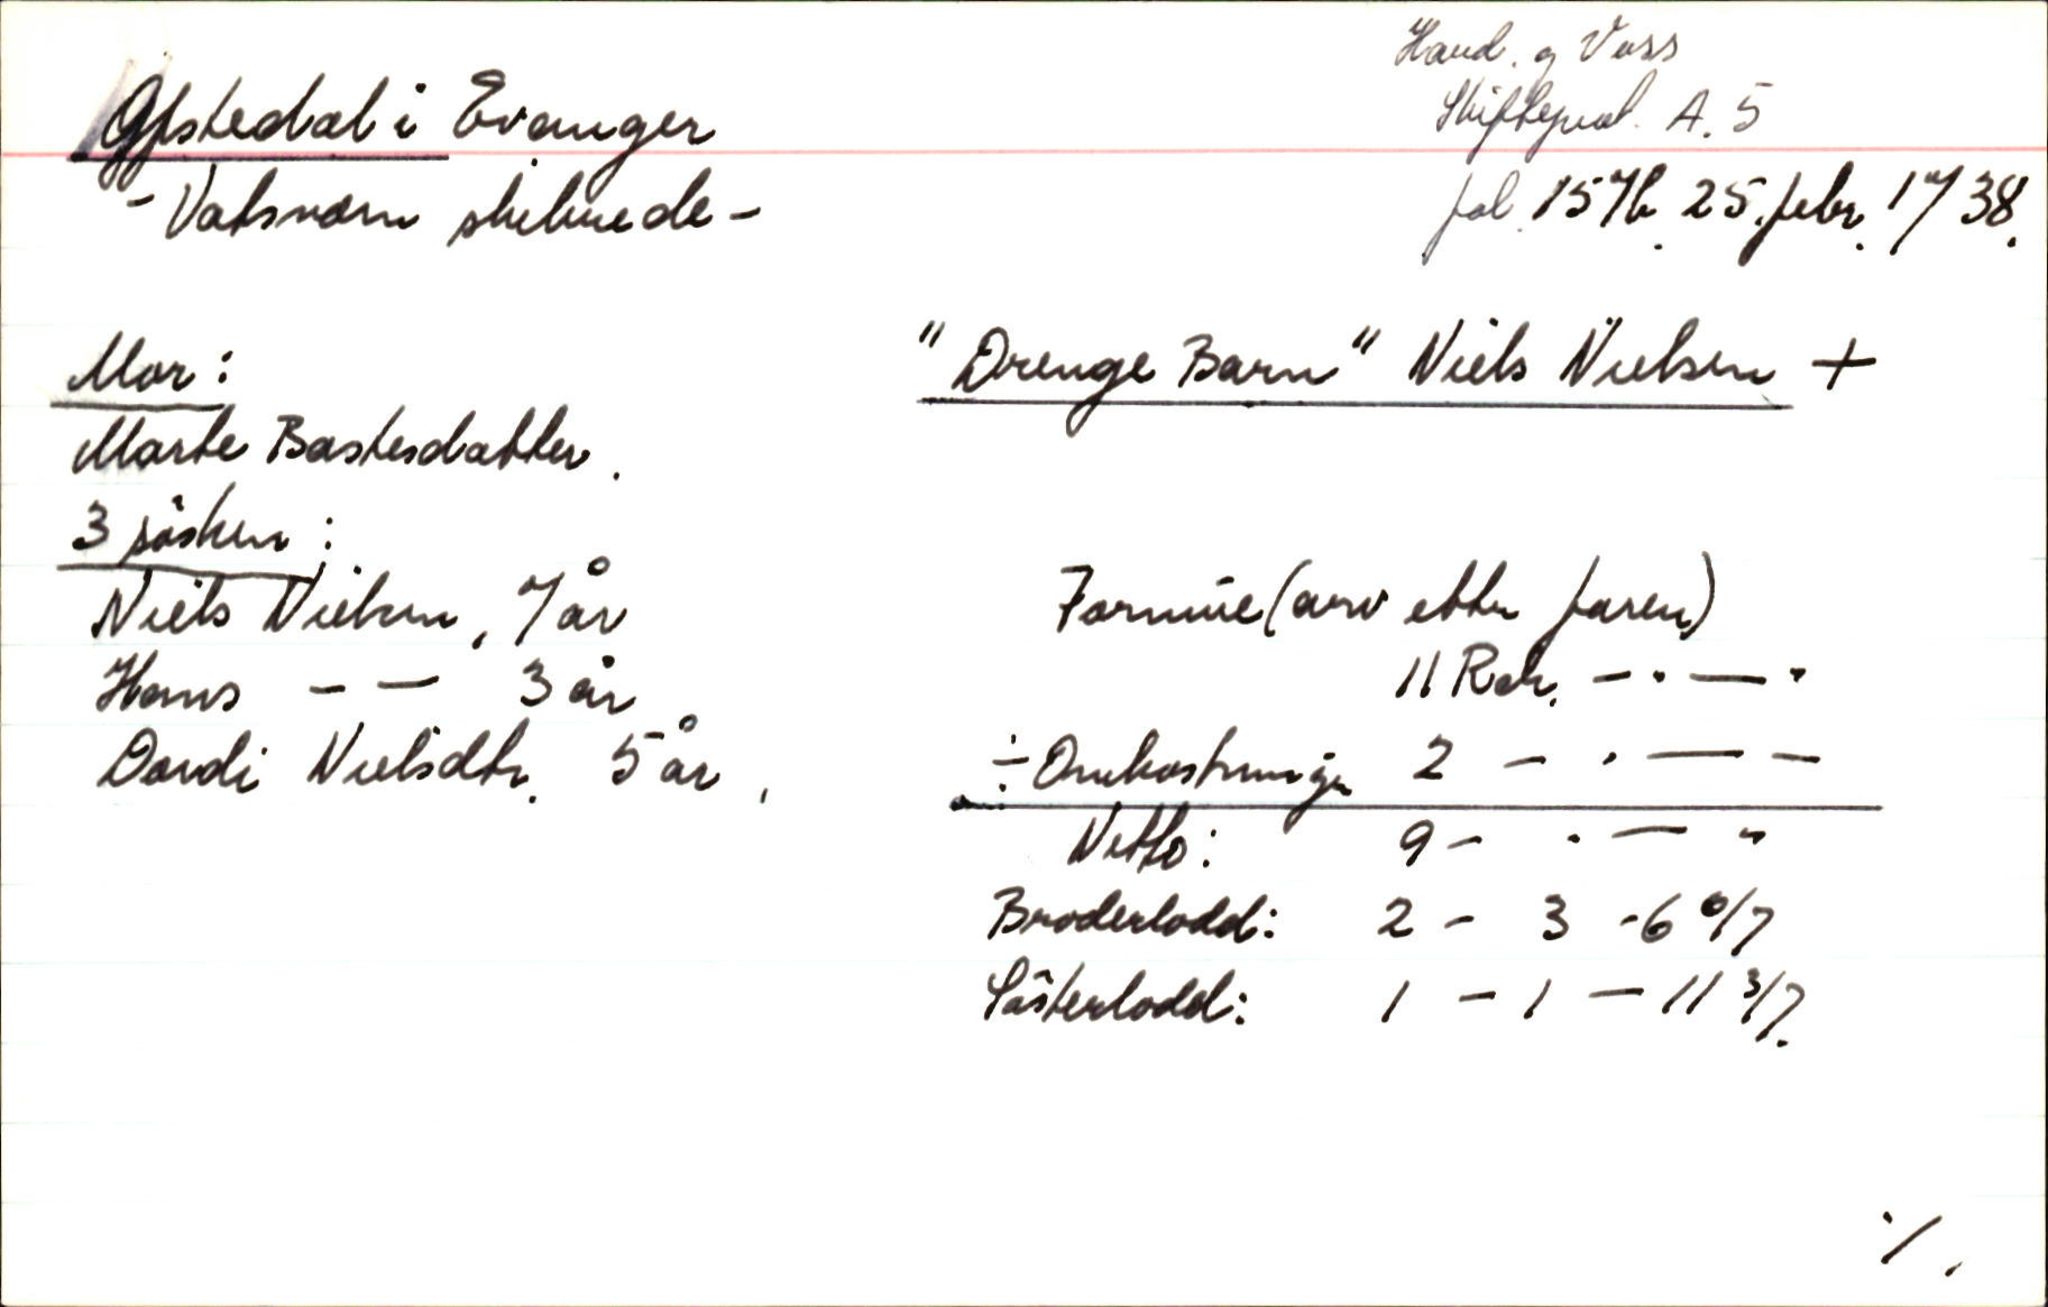 Hard. og Voss
Skifteprot. A. 5
fol. 157b. 25. febr. 1738.
Gfstedal i Evanger
- Vatsværn skibrede -
Mor:
Marte Bastesdatter.
3 søsken:
Niels Nielsen, 7 år
Hans - — 3 år
Dordi Nielsdtr. 5 år.
"Drenge Barn" Niels Nielsen +
Formue (arv etter faren)
11 Rdr. - . — .
÷ Omkostninger 2 - . — -
Netto: 9 - . — "
Broderlodd: 2 - 3 - 6 6/7
Søsterlodd: 1 - 1 — 11 3/7.
./.